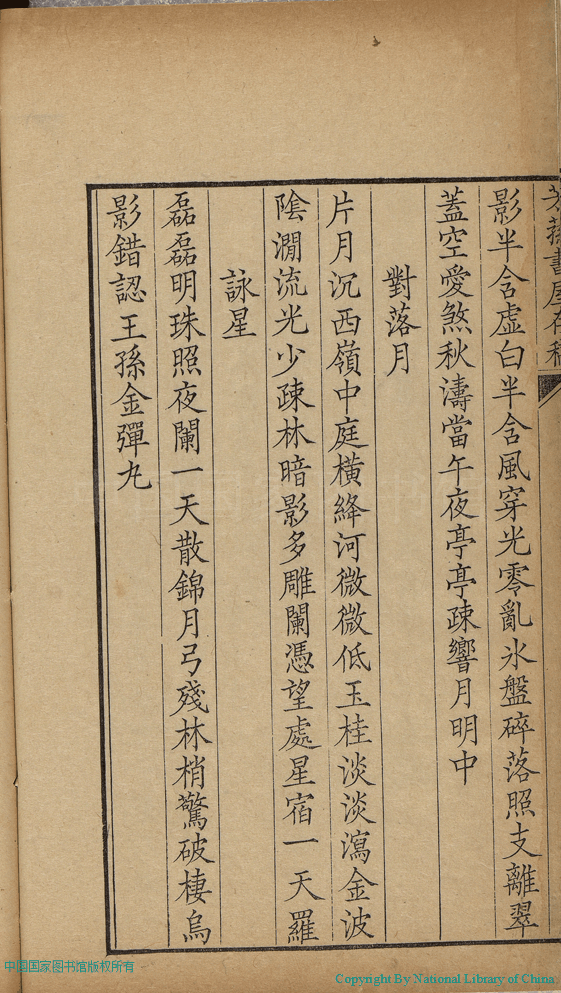 影半含虛白半含風穿光零亂氷盤碎落照支離翠
蓋空愛煞秋濤當午夜亭亭疎響月明中
對落月
片月沉西嶺中庭橫絳河微微低玉桂淡淡瀉金波
陰澗流光少疎林暗影多雕闌憑望處星宿一天羅
詠星
磊磊明珠照夜闌一天散錦月弓殘林梢驚破棲烏
影錯認王孫金彈丸
中国国家图书馆版权所有
Copyright By National Library of China